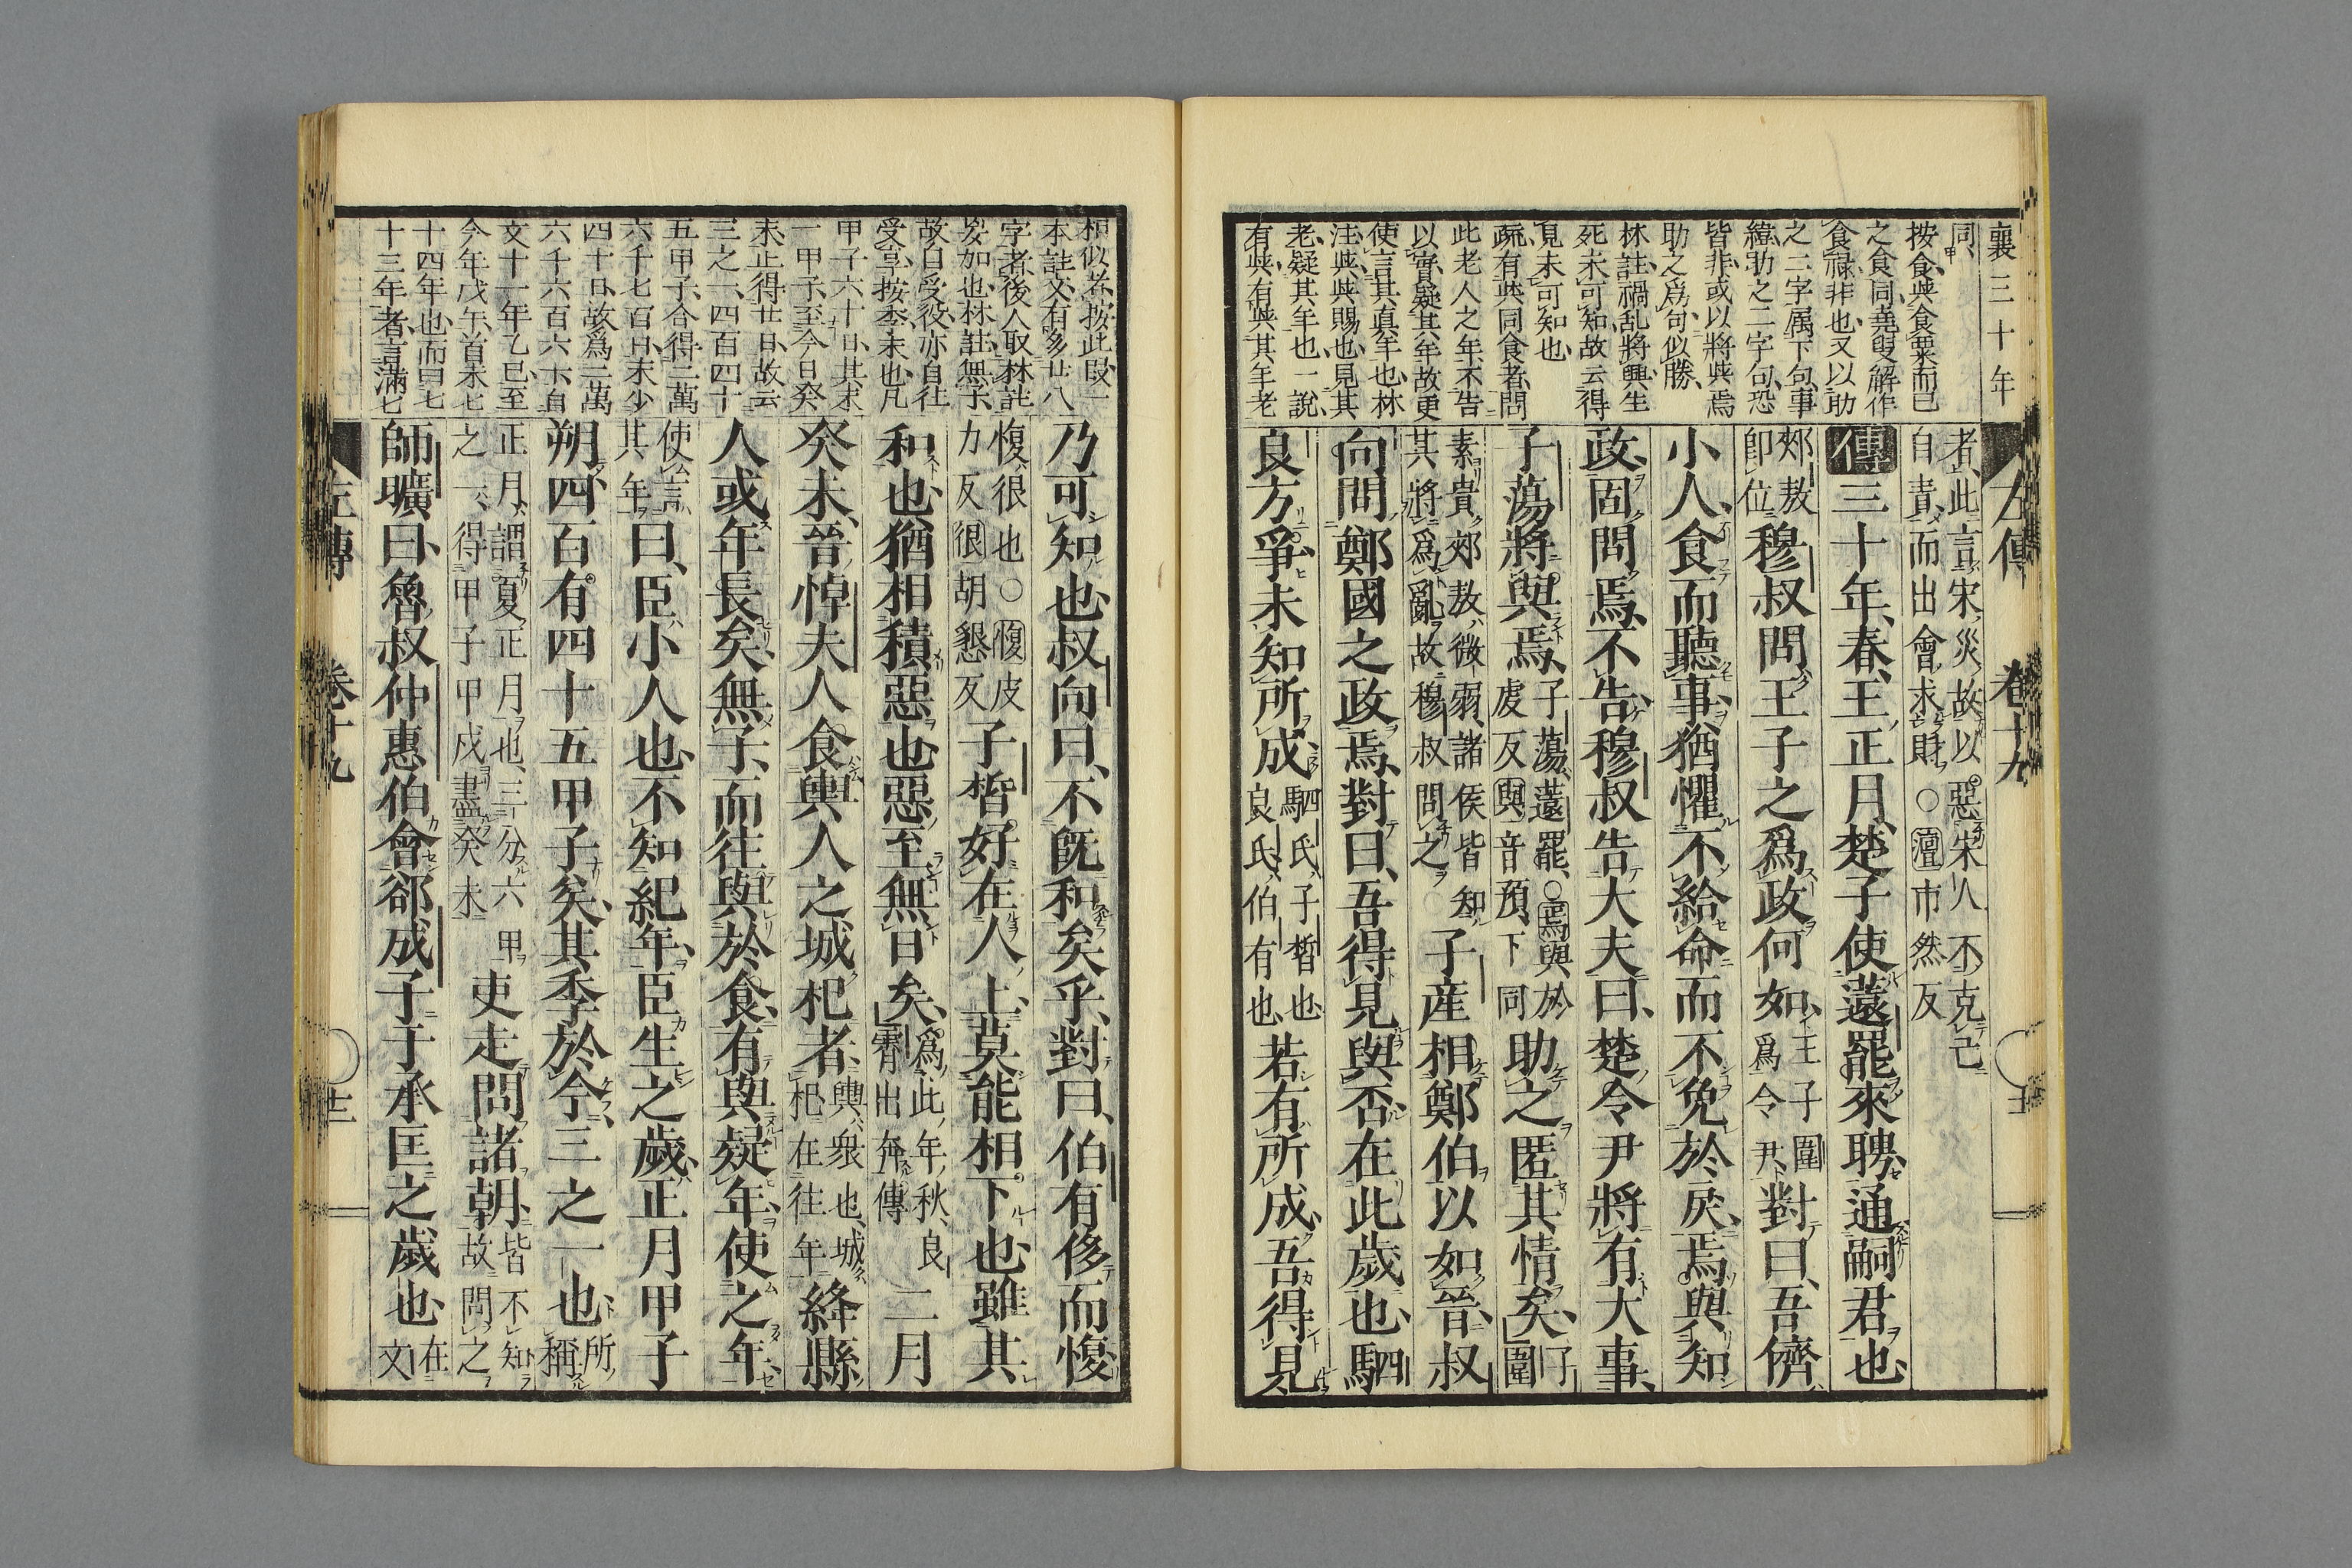 襄三十年
同、
按食與食粟而已
之食同、堯叟解作
食祿非也、又以助
之二字属下句、事
緯助之二字句、恐
皆非、或以將與焉
助之爲句、似勝、
林註、禍乱將興、生
死未可知、故云得
見未可知也
疏、有與同食者、問
此老人之年、不告
以實、疑其年、故更
使言其真年也、林
注、與、與賜也、見其
老、疑其年也、一說、
有與、有與其年老
左傳 卷十九
者、此言宋災、故以惡宋人不克己
自責、而出會求財、○澶市然反
傳三十年、春、王正月、楚子使薳罷來聘、通嗣君也、
郟敖
即位穆叔問王子之爲政何如、王子圍
爲令尹、對曰、吾儕
小人、食而聽事、猶懼不給命、而不免於戻、焉與知
政、固問焉、不告、穆叔告大夫曰、楚令尹將有大事、
子蕩將與焉、子蕩、薳罷、○焉與、於
虔反與音預下同助之匿其情矣、子
圍
素貴、郟敖微弱、諸侯皆知
其將爲亂、故穆叔問之子産相鄭伯以如晉、叔
向問鄭國之政焉、對曰、吾得見與否、在此歲也、駟
良方爭、未知所成、駟氏、子皙也
良氏、伯有也若有所成、吾得見
乃可知也、叔向曰、不既和矣乎、對曰、伯有侈而愎
愎、很也、○愎、皮
力反很胡懇反子皙好在人上、莫能相下也、雖其
和也、猶相積惡也、惡至無日矣、爲此年秋良
霄出奔傳二月
癸未、晉悼夫人食輿人之城杞者、輿、衆也、城
杞在往年絳縣
人或年長矣、無子、而往與於食、有與疑年、使之年、
使言
其年曰、臣小人也、不知紀年、臣生之歲、正月甲子
朔、四百有四十五甲子矣、其季於今三之一也、所
稱
正月、謂夏正月也、三分六甲
之一、得甲子甲戌盡癸未吏走問諸朝、皆不知
故問之
師曠曰、魯叔仲惠伯會郤成子于承匡之歲也、在
文
相似者、按此段一
本註文有多廿八
字者、後人取林註
妄加也、林註、無子、
故曰受役、亦自往
受享、按季、末也、凡
甲子六十日、其末
一甲子、至今日癸
未、止得廿日、故云
三之一、四百四十
五甲子、合得二萬
六千七百日、未少
四十日、故爲二萬
六千六百六十、自
文十一年乙巳、至
今年戊午、首末七
十四年也、而曰七
十三年者、言滿七
左傳 卷十九